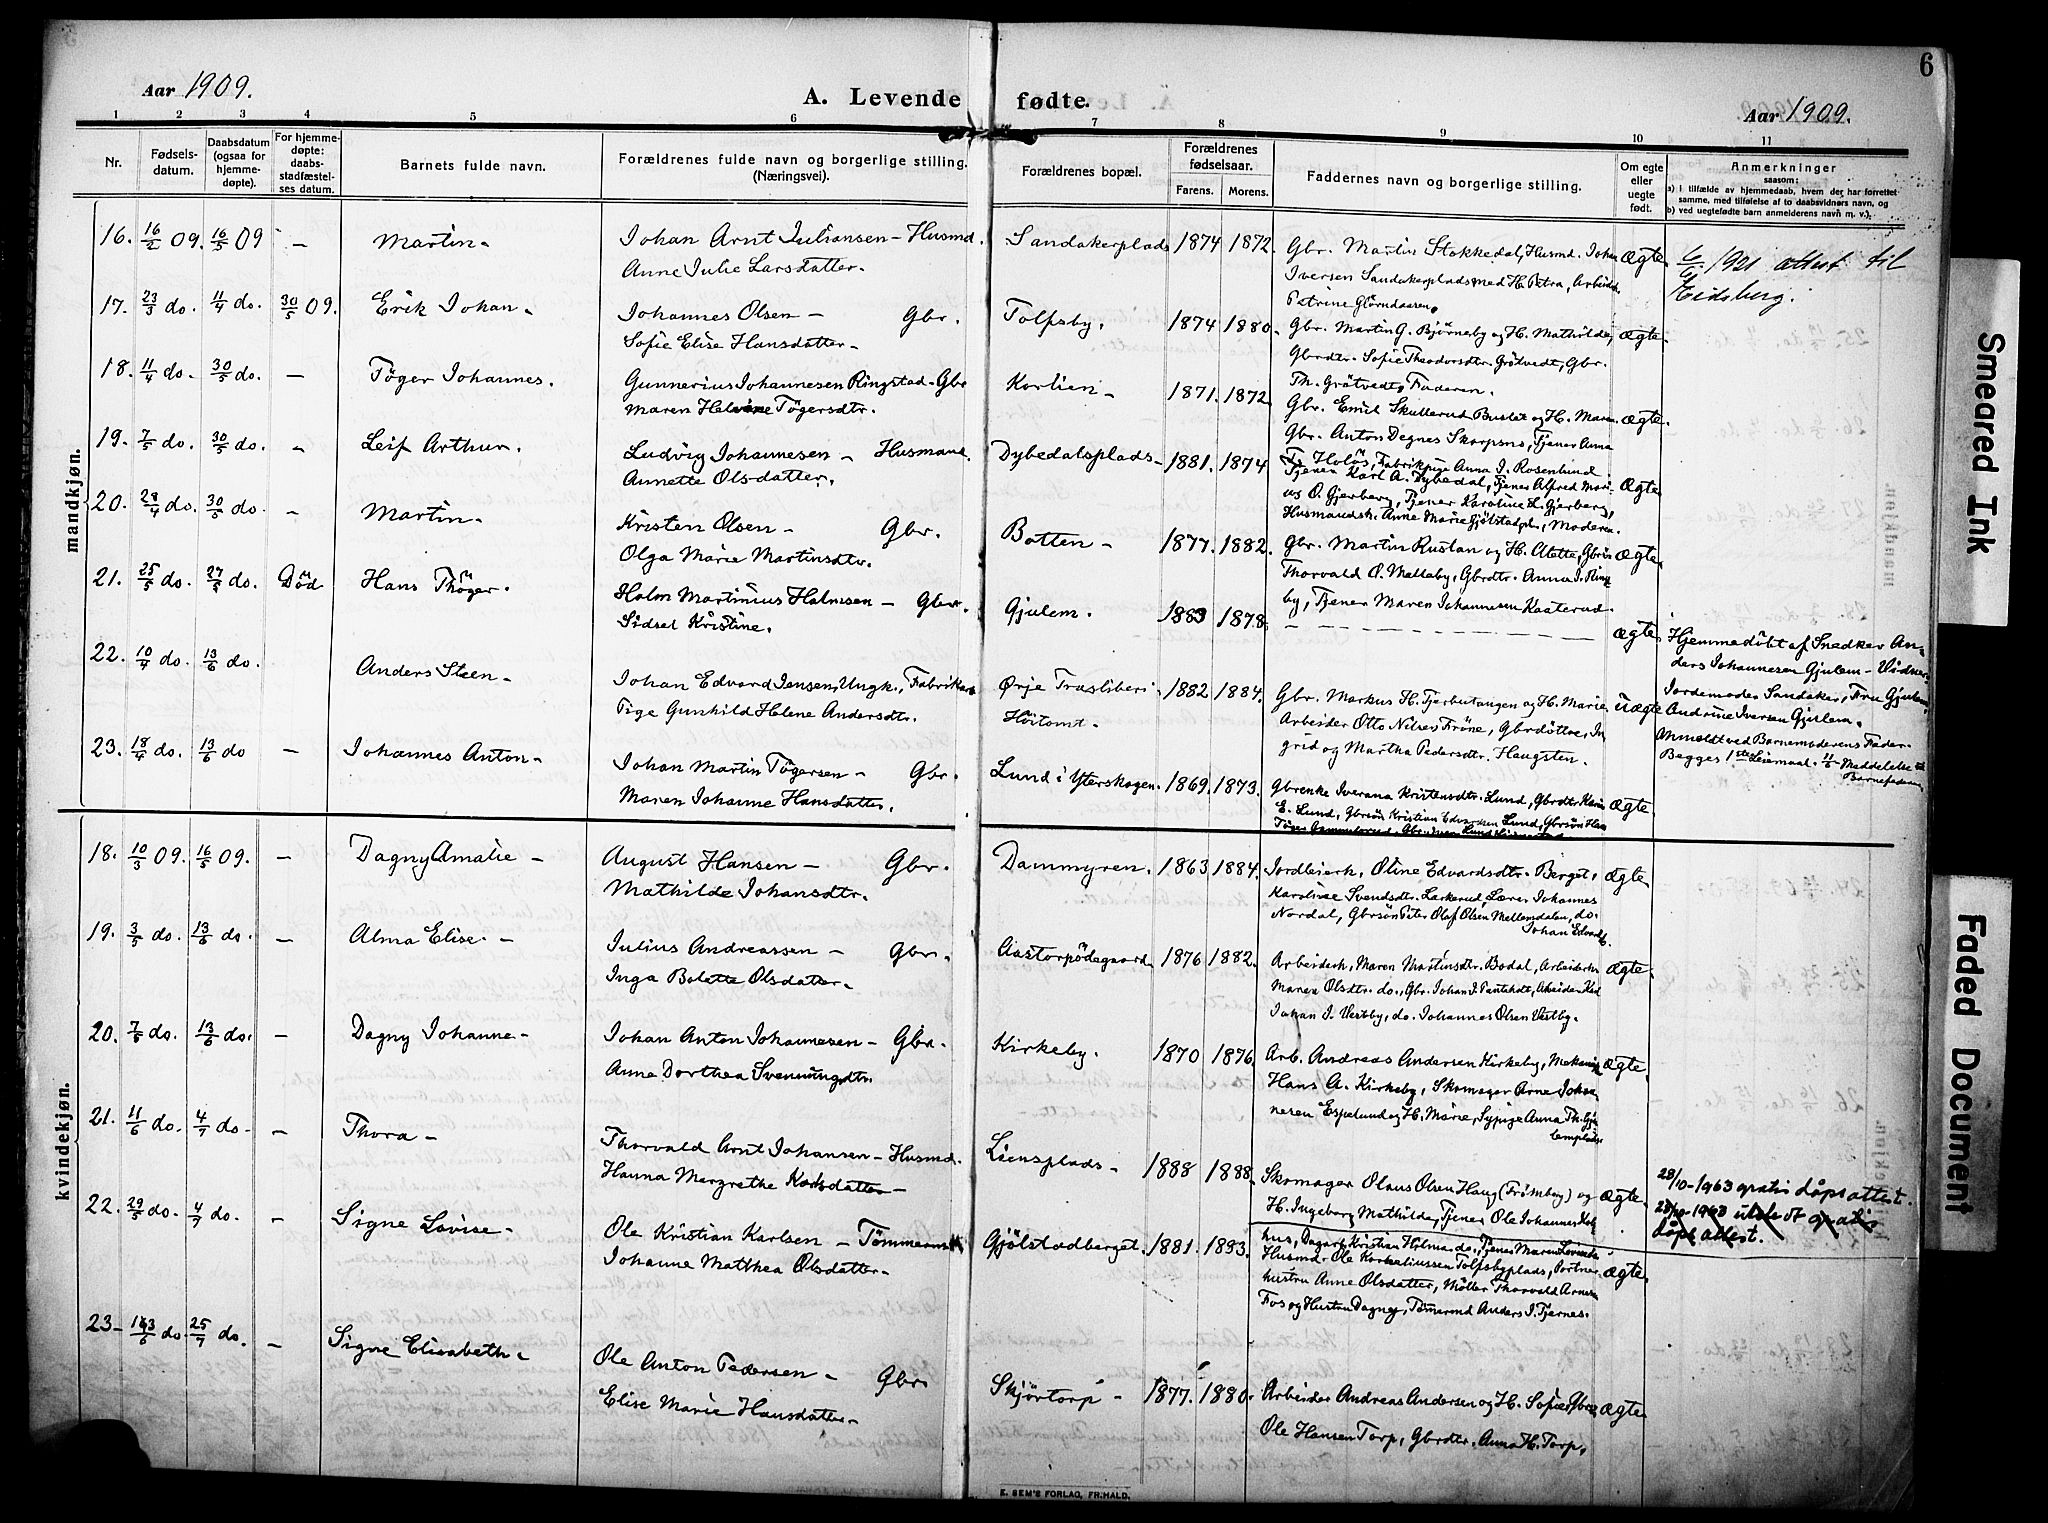 6
Aar 1909.
A. Levende fødte.
Aar 1909.
1 2 3 4 5 6 7 8 9 10 11
Nr.
Fødselsdatum.
Daabsdatum (ogsaa for hjemmedøpte).
For hjemmedøpte: daabsstadfæstelses datum.
Barnets fulde navn.
Forældrenes fulde navn og borgerlige stilling.
(Næringsvei).
Forældrenes bopæl.
Forældrenes fødselsaar.
Farens. Morens.
Faddernes navn og borgerlige stilling.
Om egte eller uegte født.
Anmerkninger
saasom:
a) I tilfælde av hjemmedaab, hvem der har forrettet samme, med tilføielse af to daabsvidners navn, og
b) ved uegtefødte barn anmelderens navn m. v.).
mandkjøn.
16. 16/2 09. 16/5 09 – Martin – Johan Arnt Juliansen – Husmd. Sandakerplads 1874 1872. Gbr. Martin Stokkedal, Husmd. Johan ægte 6/6 1921 attest til
Anne Julie Larsdatter – Iversen Sandakerplads med H. Petra, Eidsberg.
Petrine
17. 23/3 do. 11/4 do. 30/5 09. Erik Johan – Johannes Olsen – Gbr. Tolfsby. 1874 1880. Gbr. Martin G. Bjørneby og H. Mathilde, ægte
Sofie Elise Hansdatter – Gbrdtr. Sofie Theodorsdtr. Grötvedt, Gbr.
Th. Grötvedt, Faderen.
18. 11/4 do. 30/5 do. – Töger Johannes. Gunnerius Johannesen Ringstad – Gbr Korlien – 1871. 1872. Gbr. Emil Skullerud og H. Maren ægte.
Maren Helvine Tögersdtr. Gbr. Anton Degnes Skarpsno, Tjener Anna
Holös, Anna J. Rosenlund
19. 7/5 do. 30/5 do – Leif Arthur. Ludvig Johannesen – Husmand. Dybedalsplads – 1881. 1874 Tjener Karl A. Dybedal, Tjener Alfred ægte
Annette Olsdatter. O. Gjerberg, Tjener Karoline L. Gjerberg,
Anne Marie Moderen.
20. 24/4 do. 30/5 do. – Martin – Kristen Olsen – Gbr. Botten – 1877. 1882. Gbr. Martin Rustan og H. ægte
Olga Marie Martinsdtr. Thorvald O. Melleby, Gbrdtr. Anna
by, Tjener Maren Johannesen Kaaterud.
21. 25/5 do. 27/5 do. Död Hans Thöger. Holm Martinius Holmsen – Gbr. Gjulem. 1883 1878. – – – ægte. Hjemmedöbt af Snedker An-
Sidsel Kristine. ders Johannesen Gjulem – Vidner
Jordemoder Sandaker, Fru Gjulem,
Andrine Iversen Gjulem.
22. 10/4 do. 13/6 do. Anders Steen – Johan Edvard Jensen, Ungk., Fabrikarb Ørje Træsliberi – 1882. 1884. Gbr. Markus H. Tjerbutangen og H. Marie uægte
Pige Gunhild Helene Andersdtr. Höitomt. Arbeider Otto Nilsen Fröne, Gbrdöttre, In Anmeldt ved Barnemoderens Fader.
grid og Martha Pedersdtr. Haugsten. Begges 1ste Leiermaal. 11/6 Meddelelse til
Barnefaderen.
23. 18/4 do. 13/6 do – Johannes Anton – Johan Martin Tögersen – Gbr. Lund i Ytterskogen. 1869. 1873. Gbrenke Iverana Kristensdtr. Lund, Gbrdtr Karin ægte.
Maren Johanne Hansdatter. E. Lund, Gbrsön Kristian Edvardsen Lund, Gbrsön Hans
kvindekjøn.
18. 10/3 09. 16/5 09. – Dagny Amalie – August Hansen – Gbr. Dammyren. 1863 1884. Jordbeierk, Oline Edvardsdtr. Berget, ægte
Mathilde Johansdtr. Karoline Svendsdtr. Lakerud, Lærer Johannes
Nordal, Gbrsön Peter Olaf Olsen Mellemdalen, do.
Johan
19. 3/5 do. 13/6 do. – Alma Elise – Julius Andreassen – Gbr. Aastorpödegaard 1876 1882. Arbeiderk, Maren Martinsdtr. Bodal, Arbeiderk ægte.
Inga Bolette Olsdatter – Maren Olsdtr. do., Gbr. Johan J. Arbeider Karl
Johan J. Vestby, do. Johannes Olsen Vestby.
20. 7/5 do. 13/6 do. – Dagny Johanne – Johan Anton Johannesen – Gbr. Kirkeby. 1870 1876. Arb. Andreas Andersen Kirkeby, ægte.
Anne Dorthea Svenningsdtr. Hans A. Kirkeby, Skomager Arne Johan
nesen Espelund og H. Marie, Sypige Anna Th. Gju
lemplads.
21. 11/6 do. 4/7 do. – Thora – Thorvald Arnt Johansen – Husmd. Liensplads – 1888 1888. Skomager Olaus Olsen Haug (Frömberg) og ægte. 28/10-1963 gratis dåpsattest.
Hanna Margrethe Karlsdatter – H. Ingeborg Mathilde, Tjener Ole Johannes 28/10-1963 utste dt gratis
hus, Kristian Hilma do., Tjener Maren dåpsattest.
22. 29/5 do. 4/7 do. – Signe Lovise – Ole Kristian Karlsen – Tömmermd Gjölstadberget. 1881. 1883. Husmd. Ole Korneliussen Tolfsbyplads, ægte
Johanne Matthea Olsdatter – hustru Anne Olsdatter, Möller Thorvald Arnesen
Fos og Hustru Dagny, Tömermd Anders J. Tjernes.
23 – 13/6 do. 25/7 do. – Signe Elisabeth – Ole Anton Pedersen – Gbr Skjörtorp – 1877. 1880. Arbeider Andreas Andersen og H. Sofie, Gbr ægte
Elise Marie Hansdatter – Ole Hansen Torp, Gbrdtr. Anna H. Torp,
E. SEM'S FORLAG, FR.HALD.
Smeared Ink
Faded Document